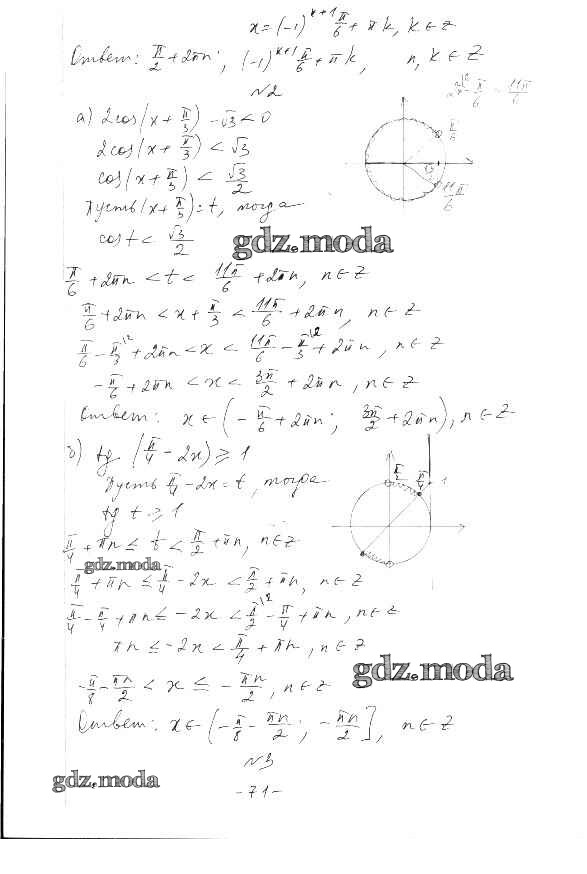 x = (-1)^{k+1} π/6 + πk, k ∈ Z
Ответ: π/2 + 2πn; (-1)^{k+1} π/6 + πk, n, k ∈ Z
№2
π/6 11π/6
а) 2cos(x + π/3) - √3 < 0
2cos(x + π/3) < √3
π/6
cos(x + π/3) < √3/2
11π/6
Пусть (x + π/3) = t, тогда
cos t < √3/2
gdz.moda
π/6 + 2πn < t < 11π/6 + 2πn, n ∈ Z
π/6 + 2πn < x + π/3 < 11π/6 + 2πn, n ∈ Z
π/6 - π/3^{\2} + 2πn < x < 11π/6 - π/3^{\2} + 2πn, n ∈ Z
-π/6 + 2πn < x < 3π/2 + 2πn, n ∈ Z
Ответ: x ∈ (-π/6 + 2πn; 3π/2 + 2πn), n ∈ Z
б) tg (π/4 - 2x) ≥ 1
π/2 π/4 1
Пусть π/4 - 2x = t, тогда
tg t ≥ 1
π/4 + πn ≤ t < π/2 + πn, n ∈ Z
gdz.moda
π/4 + πn ≤ π/4 - 2x < π/2 + πn, n ∈ Z
π/4 - π/4 + πn ≤ -2x < π/2^{\2} - π/4 + πn, n ∈ Z
πn ≤ -2x < π/4 + πn, n ∈ Z
gdz.moda
-π/8 - πn/2 < x ≤ -πn/2, n ∈ Z
Ответ: x ∈ (-π/8 - πn/2; -πn/2], n ∈ Z
№3
gdz.moda
-71-